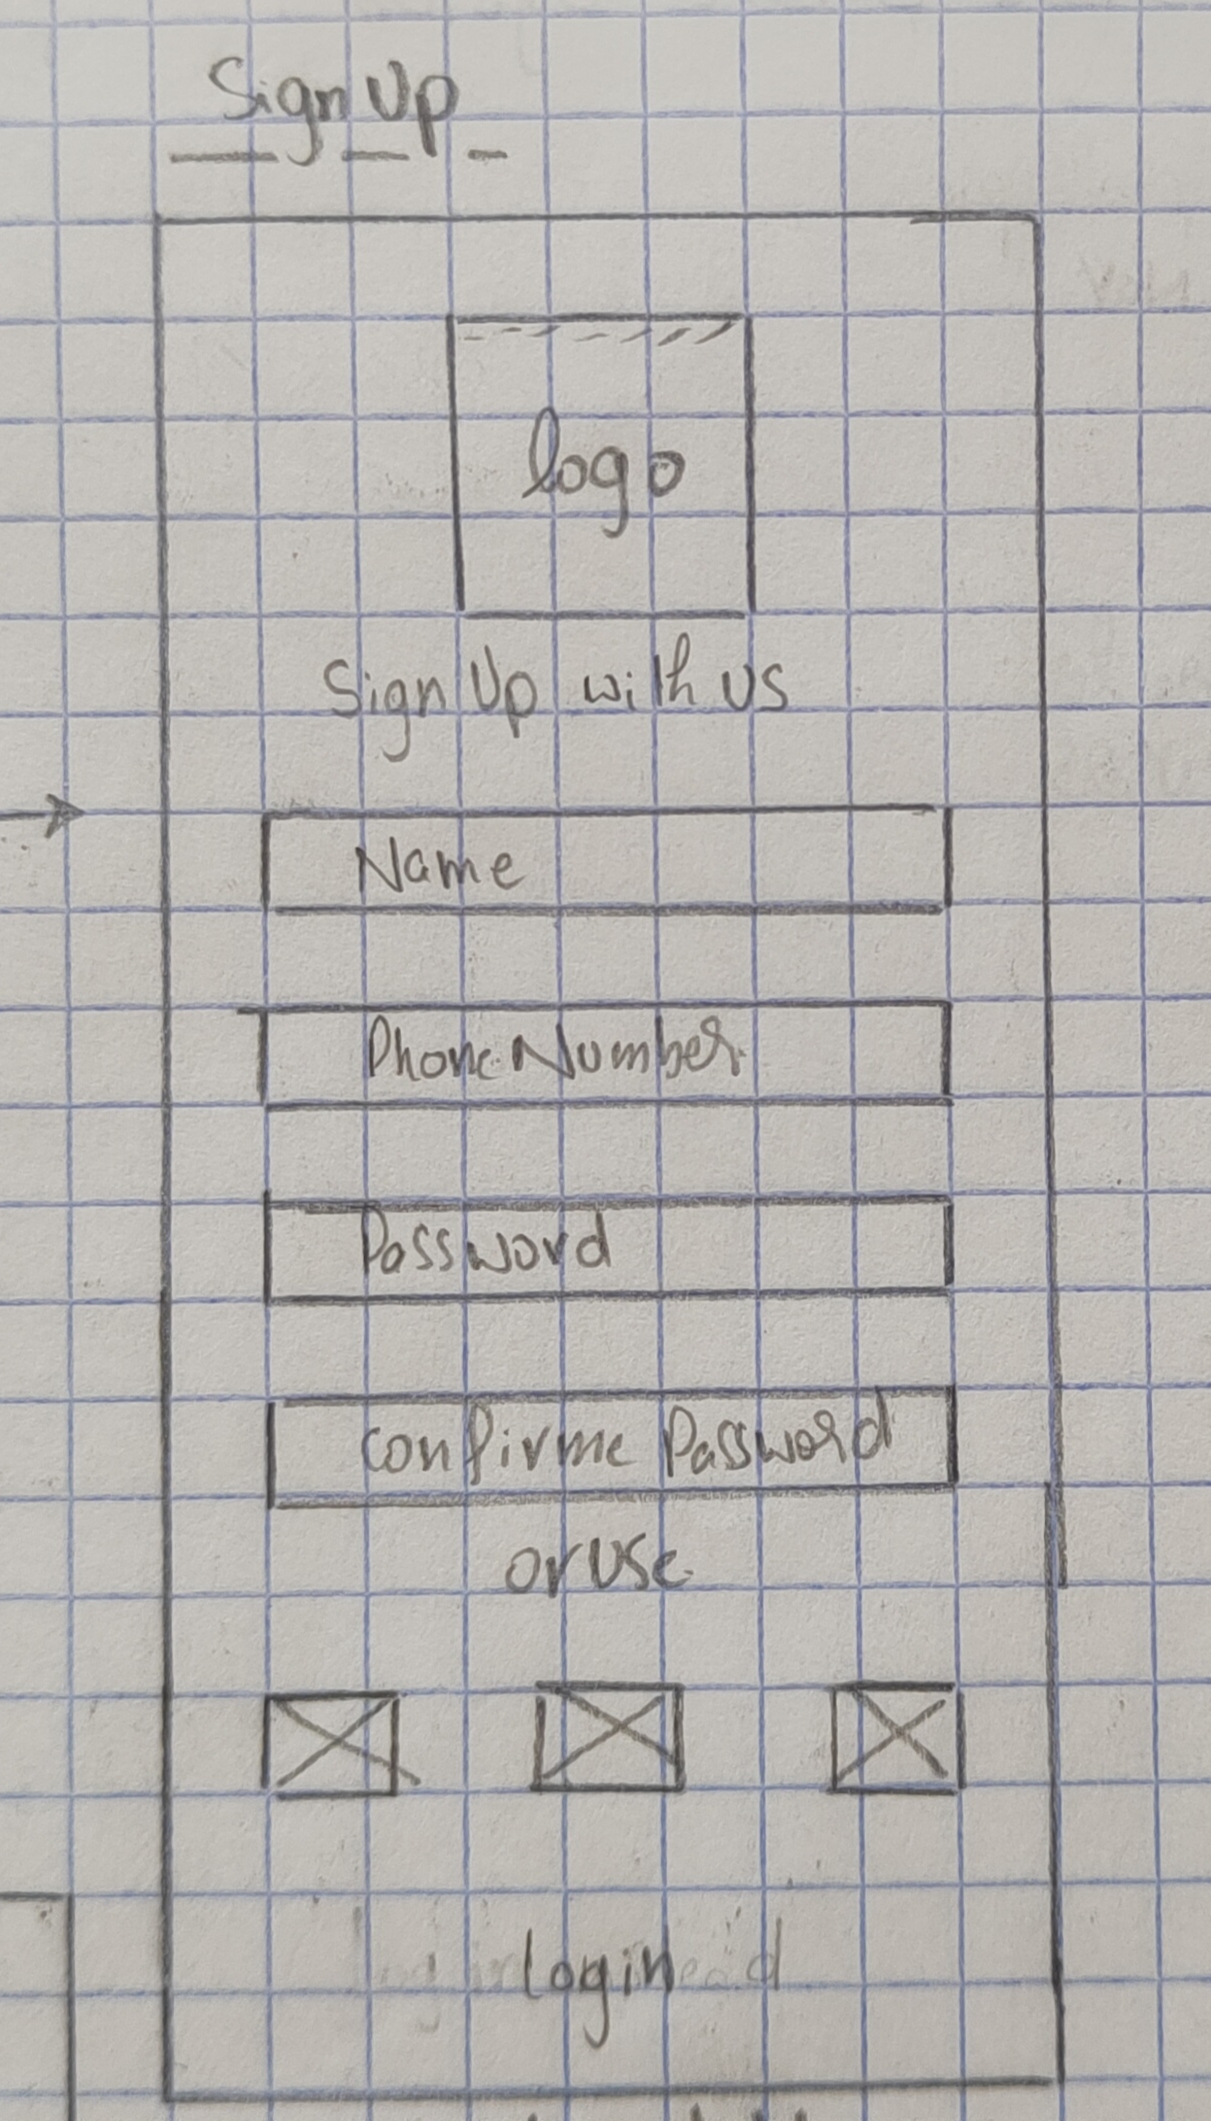 Sign Up
logo
Sign Up with us
Name
Phone Number
Password
confirme Password
or use
login